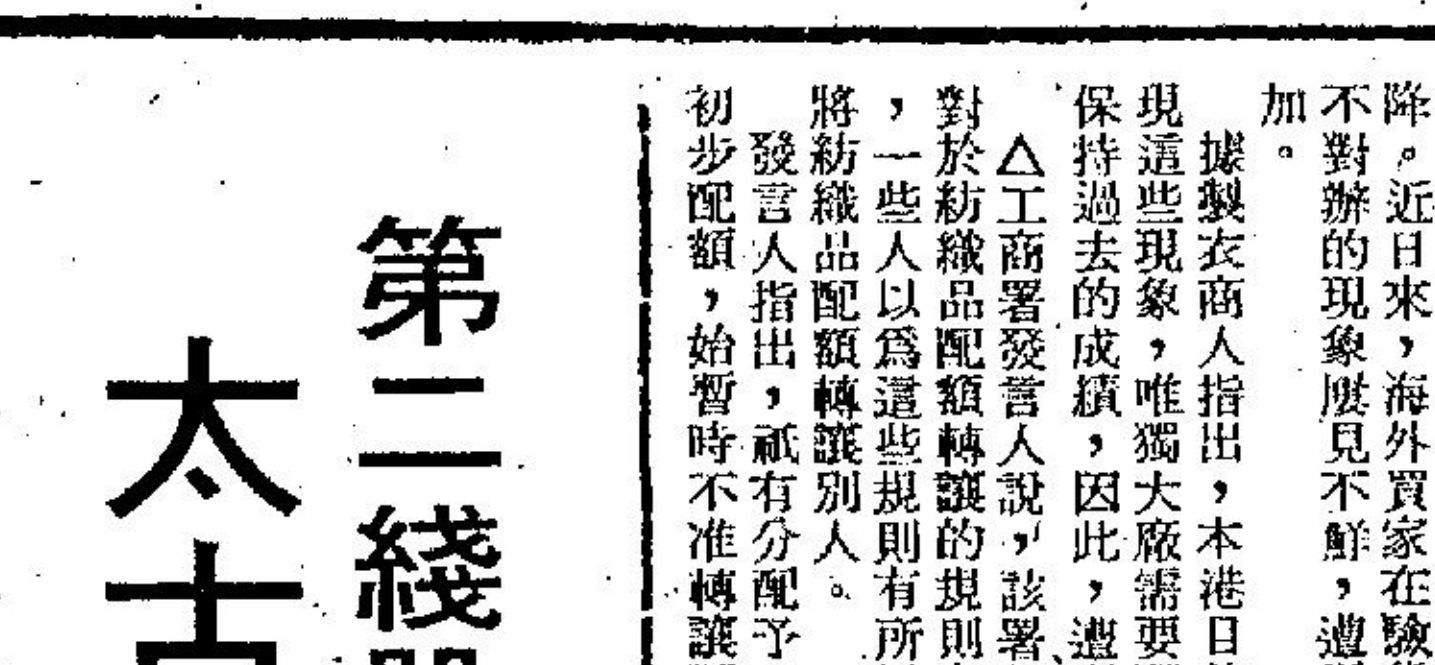 降。近日來，海外買家在驗
不對辦的現象屢見不鮮，遭
加。
據製衣商人指出，本港日
現這些現象，唯獨大廠需要
保持過去的成績，因此，遭
△工商署發言人說，該署
對於紡織品配額轉讓的規則
，一些人以爲這些規則有所
將紡織品配額轉讓別人。
發言人指出，祇有分配予
初步配額，始暫時不准轉讓
第二綫
太古